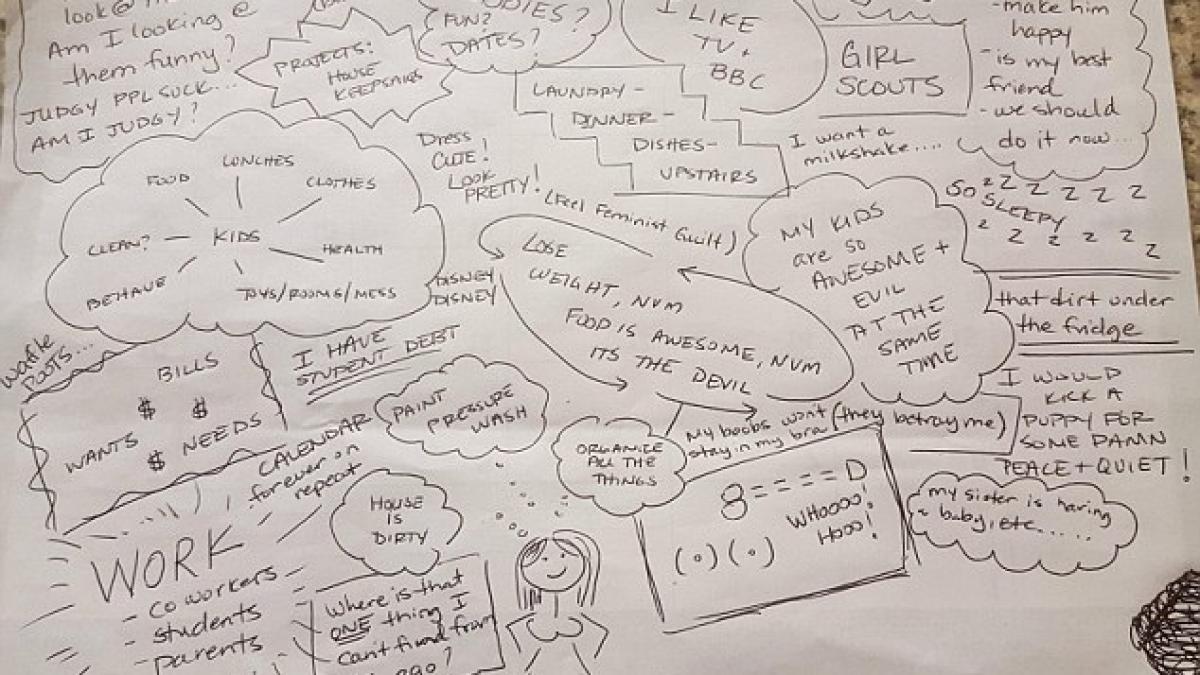 look@
Am I looking @
them funny?
JUDGY PPL SUCK...
AM I JUDGY?
PROJECTS:
HOUSE
KEEPSAKES
FUN?
DATES?
I LIKE
TV +
BBC
GIRL
SCOUTS
- make him
happy
- is my best
friend
- we should
do it now...
LAUNDRY -
DINNER -
DISHES -
UPSTAIRS
I want a
milkshake....
Dress
CUTE!
LOOK
PRETTY!
(Feel Feminist Guilt)
KIDS
LUNCHES
CLOTHES
HEALTH
TOYS/ROOMS/MESS
BEHAVE
CLEAN?
FOOD
DISNEY
DISNEY
LOSE
WEIGHT, NVM
FOOD IS AWESOME, NVM
ITS THE DEVIL
MY KIDS
are so
AWESOME +
EVIL
AT THE
SAME
TIME
SO Z Z Z Z Z Z
SLEEPY
Z Z Z Z Z Z
that dirt under
the fridge
I WOULD
KICK A
PUPPY FOR
SOME DAMN
PEACE + QUIET!
BILLS
$ $
WANTS $ NEEDS
I HAVE
STUDENT DEBT
CALENDAR
forever on
repeat
PAINT
PRESSURE
WASH
HOUSE
IS
DIRTY
ORGANIZE
ALL THE
THINGS
My boobs wont (they betray me)
stay in my bra
8====D
WHOOOO!
HOOO!
(o)(o)
my sister is having
a baby, etc.....
WORK
- coworkers
- students
- parents
Where is that
ONE thing I
Can't find from
ago?